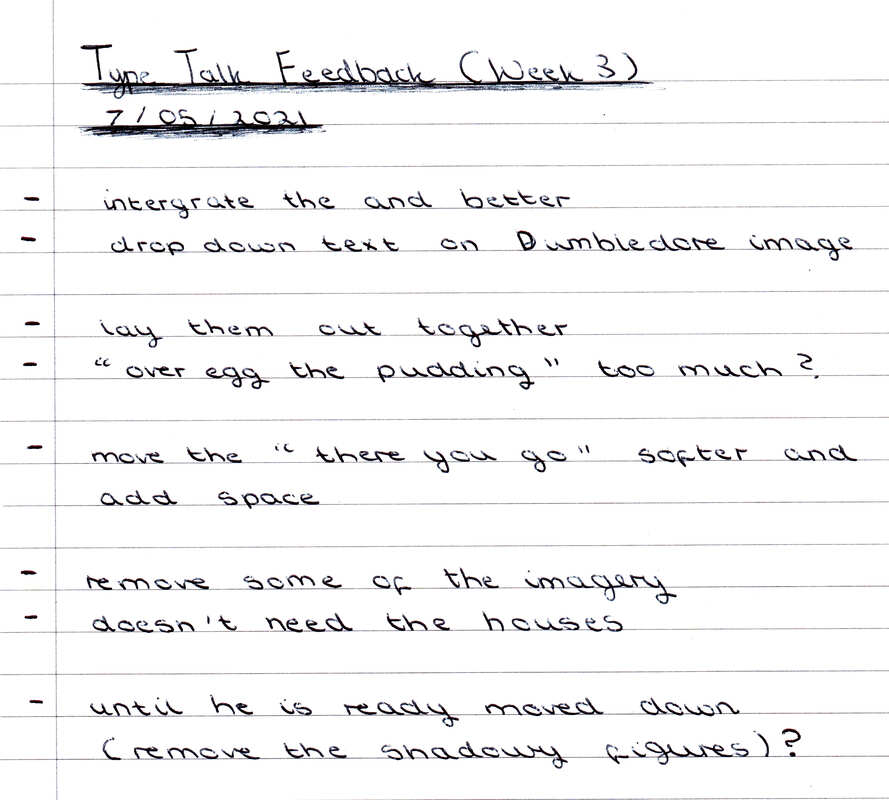 Type Talk Feedback (Week 3)
7/05/2021
- intergrate the and better
- drop down text on Dumbledore image
- lay them out together
- "over egg the pudding" too much?
- move the "there you go" softer and
add space
- remove some of the imagery
- doesn't need the houses
- until he is ready moved down
(remove the shadowy figures)?